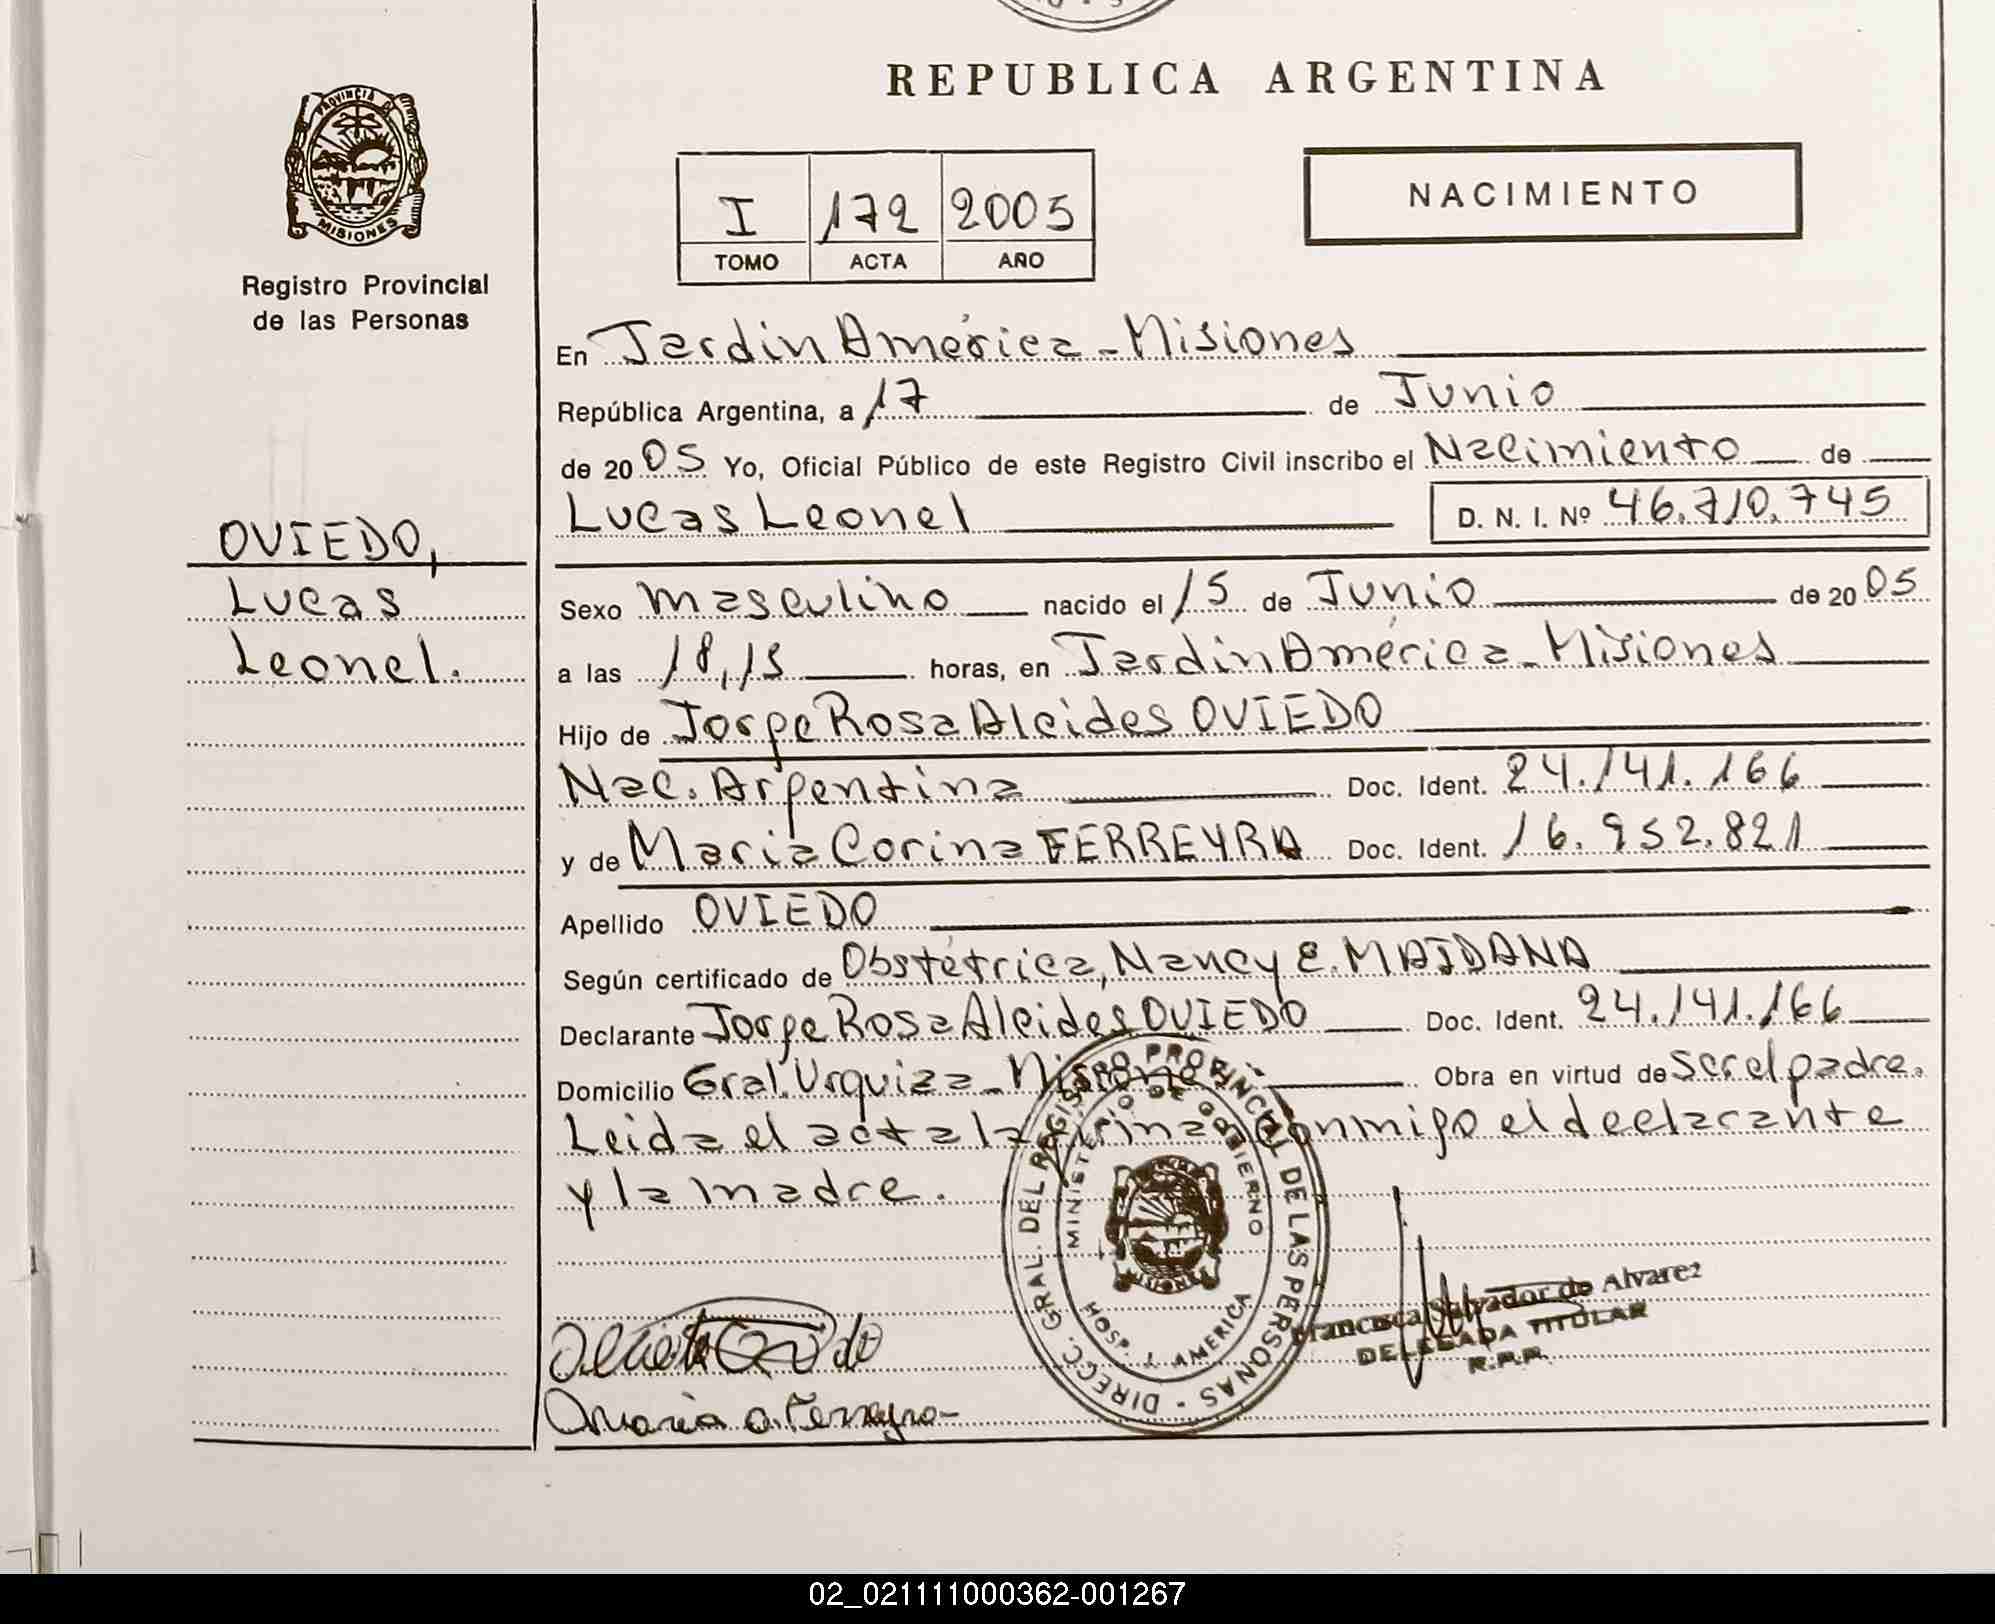 REPUBLICA ARGENTINA
PROVINCIA DE
MISIONES
Registro Provincial
de las Personas
I 172 2005
TOMO ACTA AÑO
NACIMIENTO
OVIEDO,
Lucas
Leonel.
En Jardin América - Misiones
República Argentina, a 17 de Junio
de 2005 Yo, Oficial Público de este Registro Civil inscribo el Nacimiento de
Lucas Leonel D. N. I. Nº 46.710.745
Sexo masculino nacido el 15 de Junio de 2005
a las 18,15 horas, en Jardin América - Misiones
Hijo de Jorge Rosa Alcides OVIEDO
Nac. Argentina Doc. Ident. 24.141.166
y de Maria Corina FERREYRA Doc. Ident. 16.952.821
Apellido OVIEDO
Según certificado de Obstétrica, Nancy E. MAIDANA
Declarante Jorge Rosa Alcides OVIEDO Doc. Ident. 24.141.166
Domicilio Gral. Urquiza - Misiones Obra en virtud de ser el padre.
Leida el acta la firman conmigo el declarante
y la madre.
DIRECC. GRAL. DEL REGISTRO PROVINCIAL DE LAS PERSONAS -
MINISTERIO DE GOBIERNO
MISIONES
HOSP. J. AMERICA
Francisca Salvador de Alvarez
DELEGADA TITULAR
R.P.P.
Maria C. Ferreyra
02_021111000362-001267